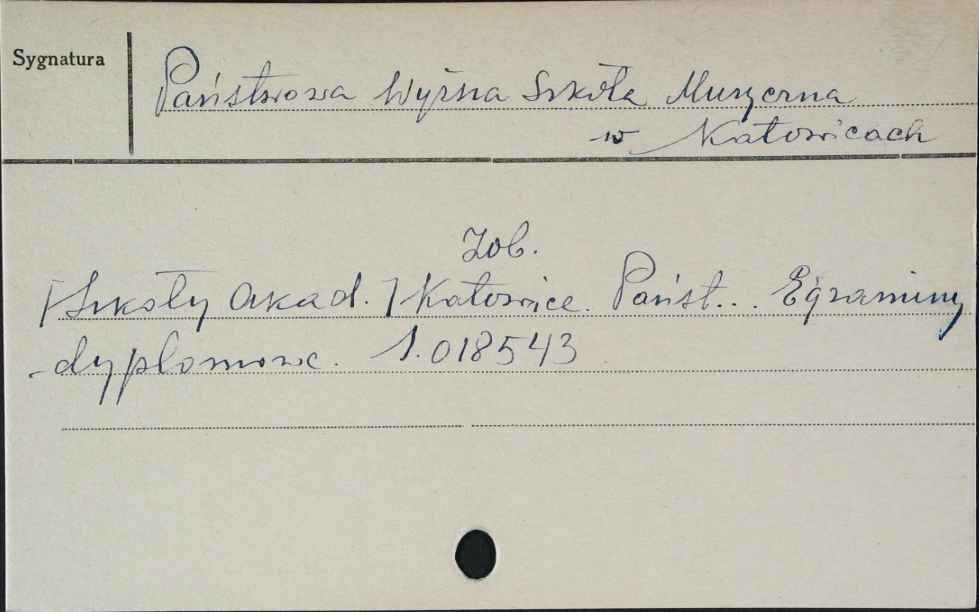 Sygnatura
Państwowa Wyższa Szkoła Muzyczna
w Katowicach
Zob.
[Szkoły Akad.] Katowice. Państ... Egzaminy
dyplomowe. 1.018543